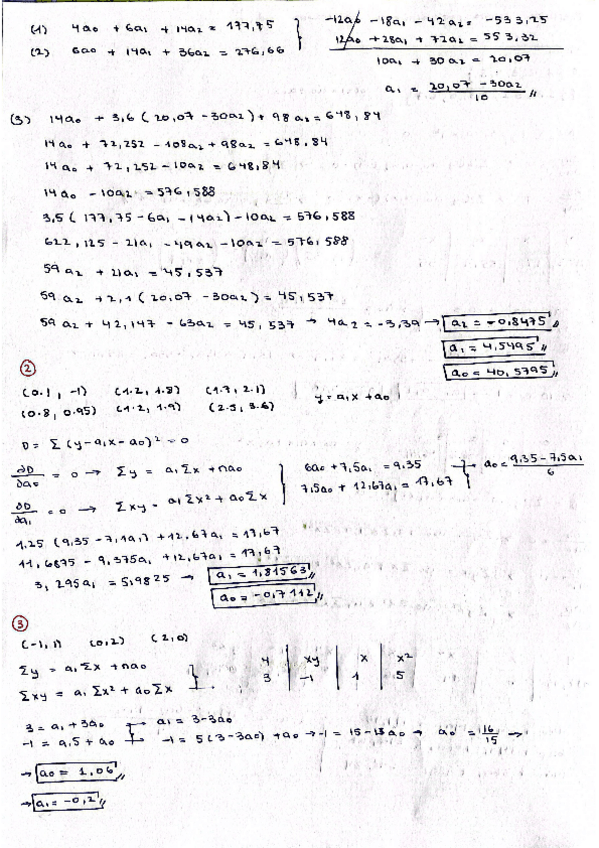 (1) 4a₀ + 6a₁ + 14a₂ = 177,75
(2) 6a₀ + 14a₁ + 36a₂ = 276,66
-12a₀ -18a₁ -42a₂ = -533,25
12a₀ +28a₁ + 72a₂ = 553,32
10a₁ + 30a₂ = 20,07
a₁ = (20,07 - 30a₂)/10 //
(3) 14a₀ + 3,6 (20,07 - 30a₂) + 98a₂ = 648,84
14a₀ + 72,252 - 108a₂ + 98a₂ = 648,84
14a₀ + 72,252 - 10a₂ = 648,84
14a₀ - 10a₂ = 576,588
3,5 (177,75 - 6a₁ - 14a₂) - 10a₂ = 576,588
622,125 - 21a₁ - 49a₂ - 10a₂ = 576,588
59a₂ + 21a₁ = 45,537
59a₂ + 2,1 (20,07 - 30a₂) = 45,537
59a₂ + 42,147 - 63a₂ = 45,537 → 4a₂ = -3,39 → a₂ = -0,8475 //
a₁ = 4,5495 //
a₀ = 40,5795 //
2
(0.1, -1) (1.2, 1.8) (1.7, 2.1)
(0.8, 0.95) (1.2, 1.9) (2.5, 3.6)
y = a₁x + a₀
D = Σ (y - a₁x - a₀)² = 0
∂D/∂a₀ = 0 → Σy = a₁Σx + na₀
∂D/∂a₁ = 0 → Σxy = a₁Σx² + a₀Σx
6a₀ + 7,5a₁ = 9.35 → a₀ = (9,35 - 7,5a₁)/6
7,5a₀ + 12,67a₁ = 17,67
1.25 (9,35 - 7,5a₁) + 12,67a₁ = 17,67
11,6875 - 9,375a₁ + 12,67a₁ = 17,67
3,295a₁ = 5,9825 → a₁ = 1,81563 //
a₀ = -0,7112 //
3
(-1, 1) (0, 2) (2, 0)
Σy = a₁Σx + na₀
Σxy = a₁Σx² + a₀Σx
y | xy | x | x²
3 | -1 | 1 | 5
3 = a₁ + 3a₀ → a₁ = 3 - 3a₀
-1 = a₁5 + a₀ → -1 = 5(3 - 3a₀) + a₀ → -1 = 15 - 15a₀ → a₀ = 16/15 →
→ a₀ = 1,06 //
→ a₁ = -0,2 //